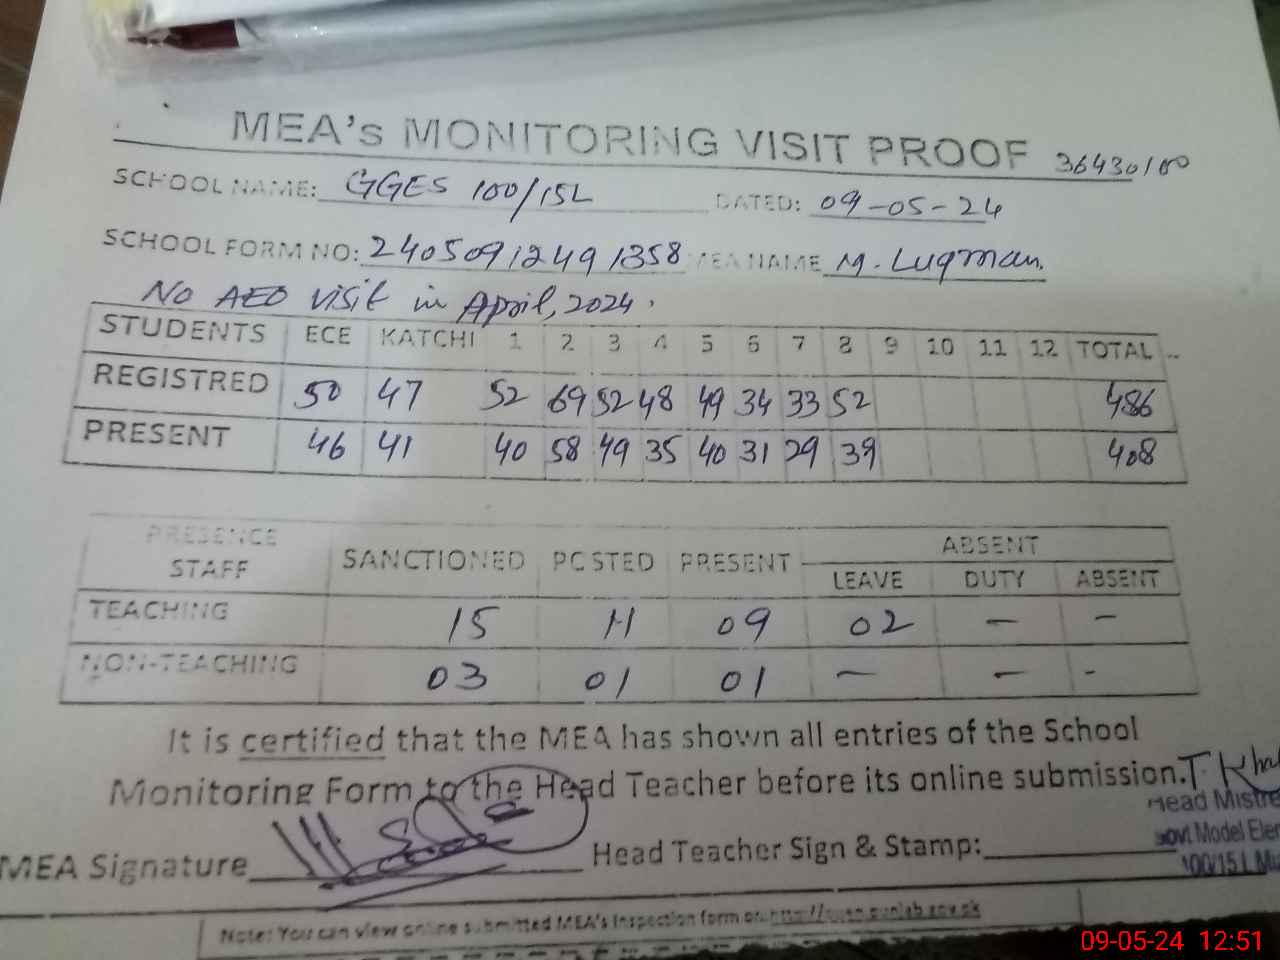 MEA's MONITORING VISIT PROOF 36430100
SCHOOL NAME: GGES 100/15L DATED: 09-05-24
SCHOOL FORM NO: 24050912491358 MEA NAME M. Luqman.
No AEO visit in April, 2024.
STUDENTS ECE KATCHI 1 2 3 4 5 6 7 8 9 10 11 12 TOTAL
REGISTRED 50 47 52 69 52 48 49 34 33 52 486
PRESENT 46 41 40 58 49 35 40 31 29 39 408
PRESENCE
STAFF SANCTIONED POSTED PRESENT ABSENT
LEAVE DUTY ABSENT
TEACHING 15 11 09 02 - -
NON-TEACHING 03 01 01 - - -
It is certified that the MEA has shown all entries of the School
Monitoring Form to the Head Teacher before its online submission.
Head Mistre
Govt Model Elem
100/15 L M
MEA Signature Head Teacher Sign & Stamp:
Note: You can view online submitted MEA's Inspection form on
09-05-24 12:51